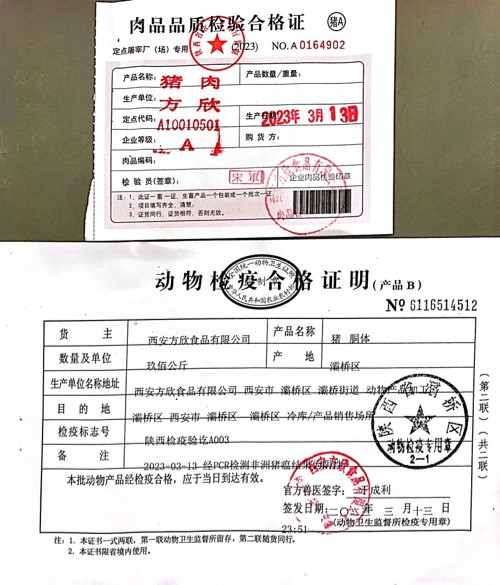 肉品品质检验合格证 猪A
定点屠宰厂（场）专用 (2023) NO.A 0164902
产品名称： 猪 肉 产品数量/重量：
生产单位： 方欣
定点代码： A10010501 生产日期 2023年 3月 13日
企业等级： A 购 货 方：
肉品编码：
检 验 员(签章)： 企业肉品检验印章
注：1、此证一畜一证，生畜产品一个包装或一个批次一证。
2、项目填写齐全、清楚。
3、证货同行，证货相符，否则无效。
动物检疫合格证明 (产品 B)
№ 6116514512
货 主 西安方欣食品有限公司 产品名称 猪 胴体
数量及单位 玖佰公斤 产 地 灞桥区
生产单位名称地址 西安方欣食品有限公司 西安市 灞桥区 灞桥街道 动物产品加工
目 的 地 灞桥区 西安市 灞桥区 灞桥区 冷库/产品销售场所
检疫标志号 陕西检疫验讫A003
备 注 2023-03-13 经PCR检测非洲猪瘟结果
本批动物产品经检疫合格，应于当日到达有效。
官方兽医签字： 于成利
签发日期： 二〇二三年 三月十三日
23:51 (动物卫生监督所检疫专用章)
注：1. 本证书一式两联，第一联动物卫生监督所留存，第二联随货同行。
2. 本证书限省境内使用。
（第二联）（共二联）
陕西省灞桥区
动物检疫专用章
2-1